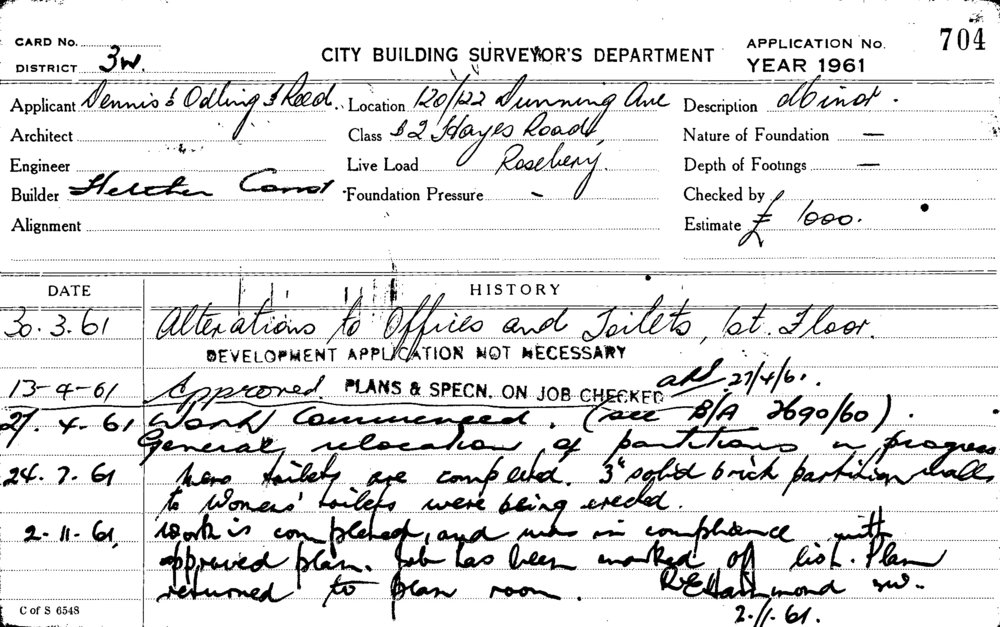 CARD No.
DISTRICT 3W.
CITY BUILDING SURVEYOR'S DEPARTMENT
APPLICATION No. 704
YEAR 1961
Applicant Dennis & Odling & Reed. Location 120/122 Dunning Ave Description
Architect Class & 2 Hayes Road, Nature of Foundation —
Engineer Live Load Rosebery. Depth of Footings —
Builder Fletcher Const. Foundation Pressure - Checked by
Alignment Estimate £ 1000.
DATE HISTORY
30.3.61 Alterations to Offices and Toilets, 1st. Floor.
DEVELOPMENT APPLICATION NOT NECESSARY
13-4-61 Approved. PLANS & SPECN. ON JOB CHECKED 27/4/61.
27.4-61 Work Commenced. (see B/A 2690/60).
General relocation of partitions in progress
24.7.61 Mens toilets are completed. 3" solid brick partition walls
to Womens' toilets were being erected.
2-11-61. Work is completed, and was in compliance with
approved plan. Job has been marked off list. Plan
returned to plan room. REHammond
2-11-61.
C of S 6548